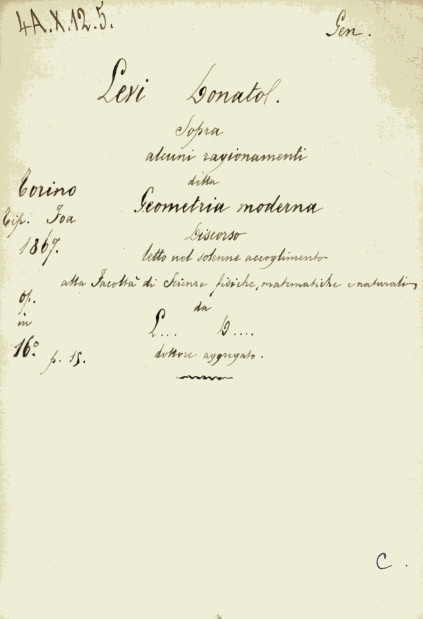 4A.X.12.5.
Gen.
Levi Donato.
Sopra
alcuni ragionamenti
della
Geometria moderna
Discorso
letto nel solenne accoglimento
alla Facoltà di Scienze fisiche, matematiche e naturali,
da
L... D....
dottore aggregato.
Torino
Tip. Foa
1867.
op.
in
16.º p. 15.
C.